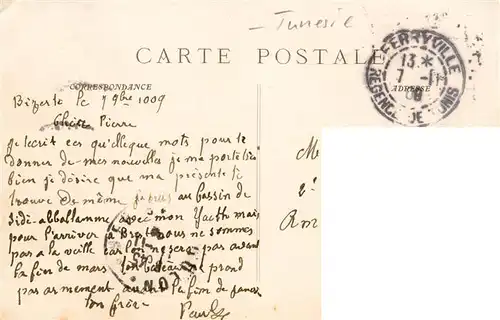 Tunesië
CARTE POSTALE
FERRYVILLE
13 *
7 -11
09
REGENCE DE TUNIS
CORRESPONDANCE
ADRESSE
Bizerte le 7 9bre 1009
Cher Pierre
je tecrit ces quelleque mots pour te
donner de mes nouvelles je me porte très
bien je désire que ma présente te
trouve de même je suis au bassin de
Sidi-abdallamme avec mon Yacth mais
pour l'arriver à Brest nous ne sommes
pas a la veille car lon ne sera pas avant
la fin de mars ton bateau ne prend
pas armement avant la fin de janv
ton frère
TOULON